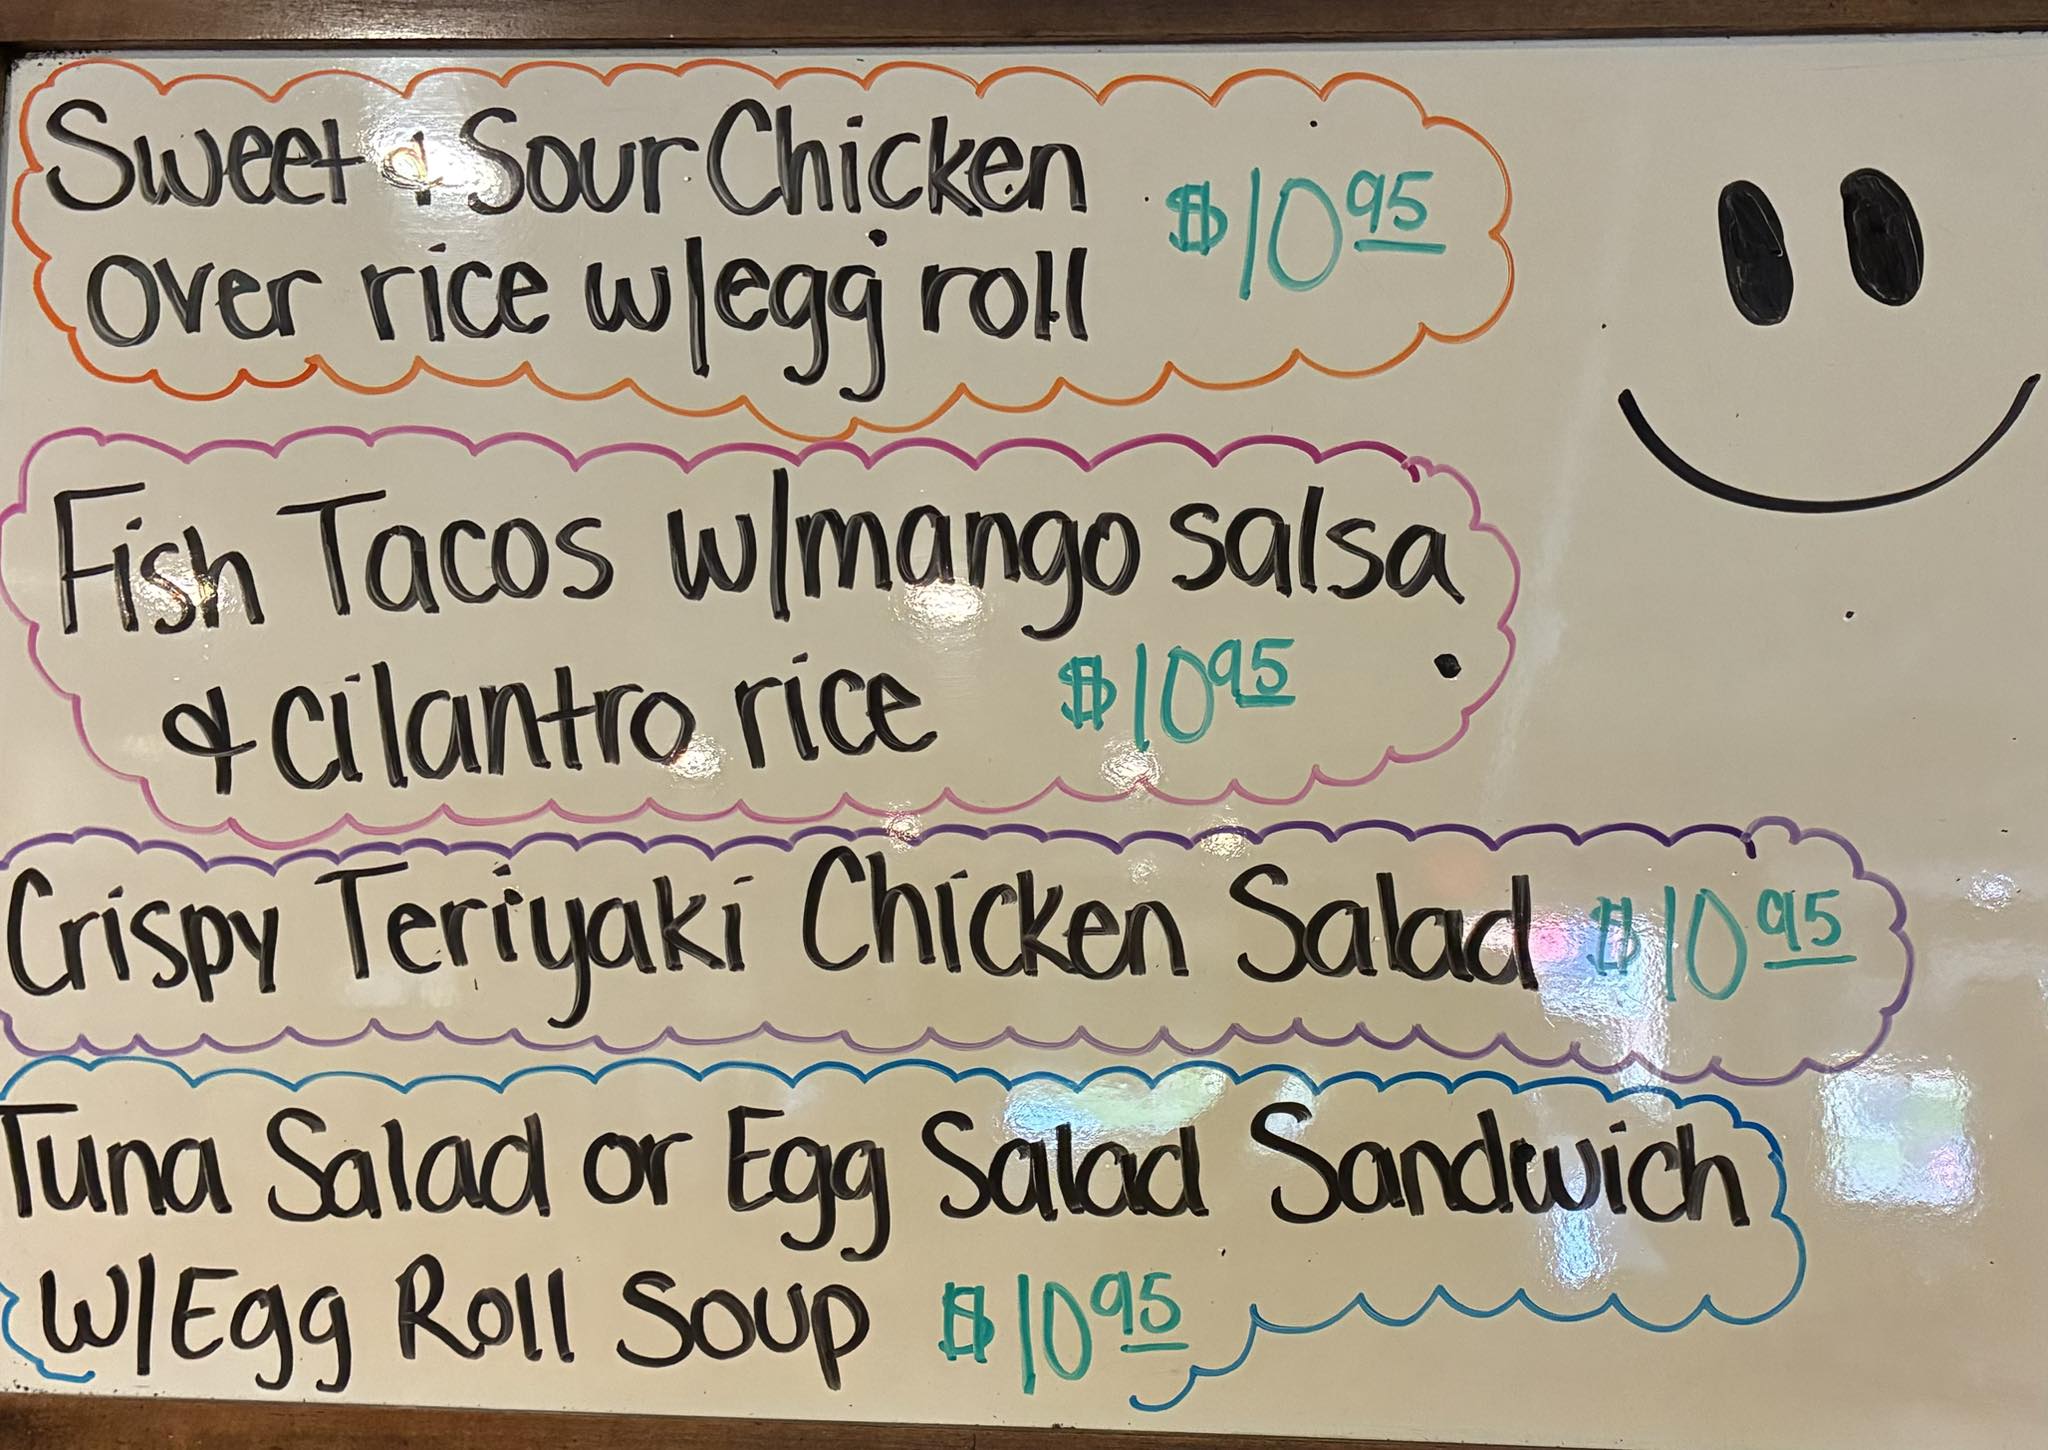 Sweet & Sour Chicken
over rice w/egg roll $10.95
Fish Tacos w/mango salsa
& cilantro rice $10.95
Crispy Teriyaki Chicken Salad $10.95
Tuna Salad or Egg Salad Sandwich
W/Egg Roll Soup $10.95